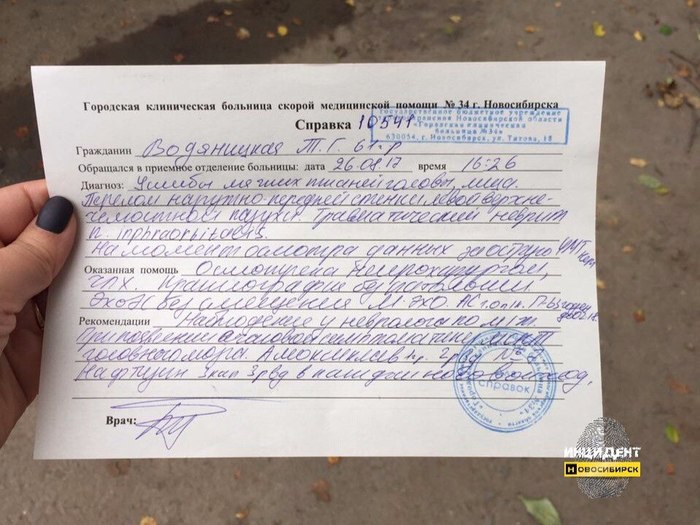 Городская клиническая больница скорой медицинской помощи № 34 г. Новосибирска
Справка 10541
государственное бюджетное учреждение
здравоохранения Новосибирской области
«Городская клиническая
больница №34»
630054, г. Новосибирск, ул. Титова, 18
Гражданин Водяницкая Т. Г. 61 г.р
Обращался в приемное отделение больницы: дата 26.09.17 время 16:26
Диагноз: Ушибы мягких тканей головы, лица.
Перелом наружно-передней стенки левой верхне-
челюстной пазухи. Травматический неврит
n. infraorbitalis.
На момент осмотра данных за острую ЧМТ нет
Оказанная помощь Осмотрена Нейрохирургом,
ЧЛХ. Краниография без патологии
ЭхоЭС без смещения М-эхо.
Рекомендации Наблюдение у невролога по м/ж
При появлении
головного мозга. Амоксиклав
Нафтизин 3 кап 3 р/д в каждый носовой ход.
справок
Врач:
ИНЦИДЕНТ
НОВОСИБИРСК